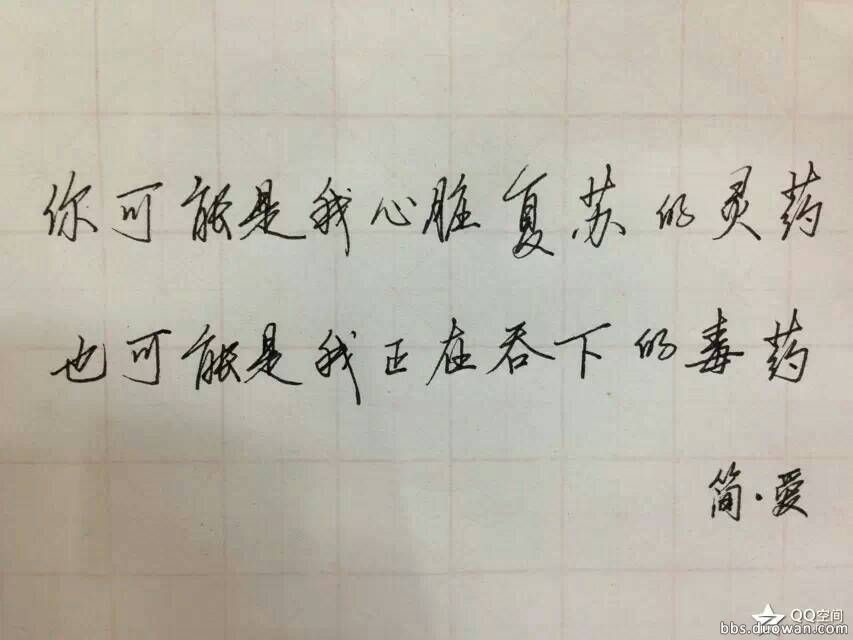 你可能是我心脏复苏的灵药
也可能是我正在吞下的毒药
简·爱
QQ空间
bbs.duowan.com